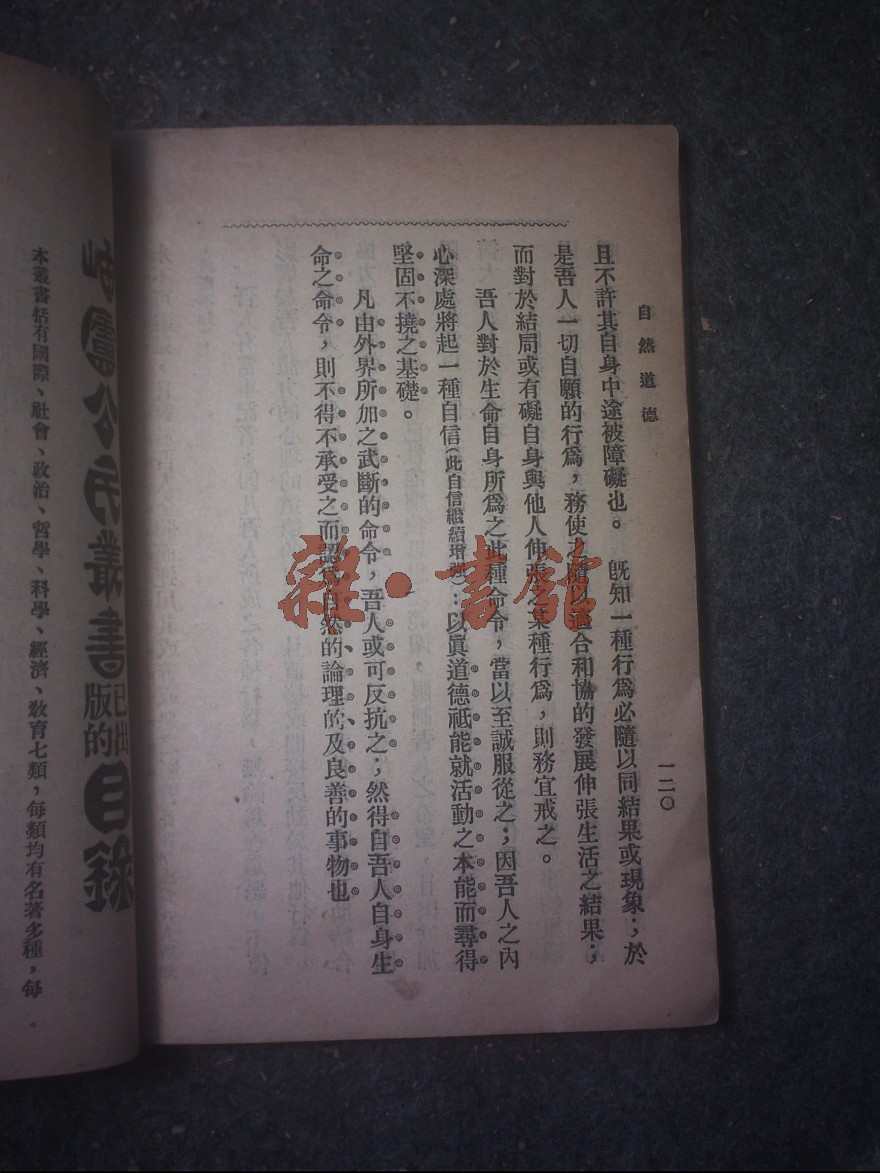 自然道德
一二〇
且不許其自身中途被障礙也。旣知一種行爲必隨以同結果或現象；於
是吾人一切自願的行爲，務使之隨以適合和協的發展伸張生活之結果；
而對於結局或有礙自身與他人伸張之某種行爲，則務宜戒之。
吾人對於生命自身所爲之此種命令，當以至誠服從之；因吾人之內
心深處將起一種自信（此自信繼續增強）：以眞道德祗能就活動之本能而尋得
堅固不撓之基礎。
凡由外界所加之武斷的命令，吾人或可反抗之；然得自吾人自身生
命之命令，則不得不承受之而認爲自然的、論理的、及良善的事物也
雜·書館
叢書
已出
版的
目錄
本叢書括有國際、社會、政治、哲學、科學、經濟、敎育七類，每類均有名著多種，每